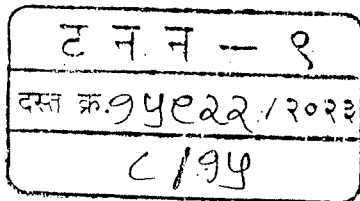 ट न न - ९
दस्त क्र. १५९२२ / २०२३
८ / १५